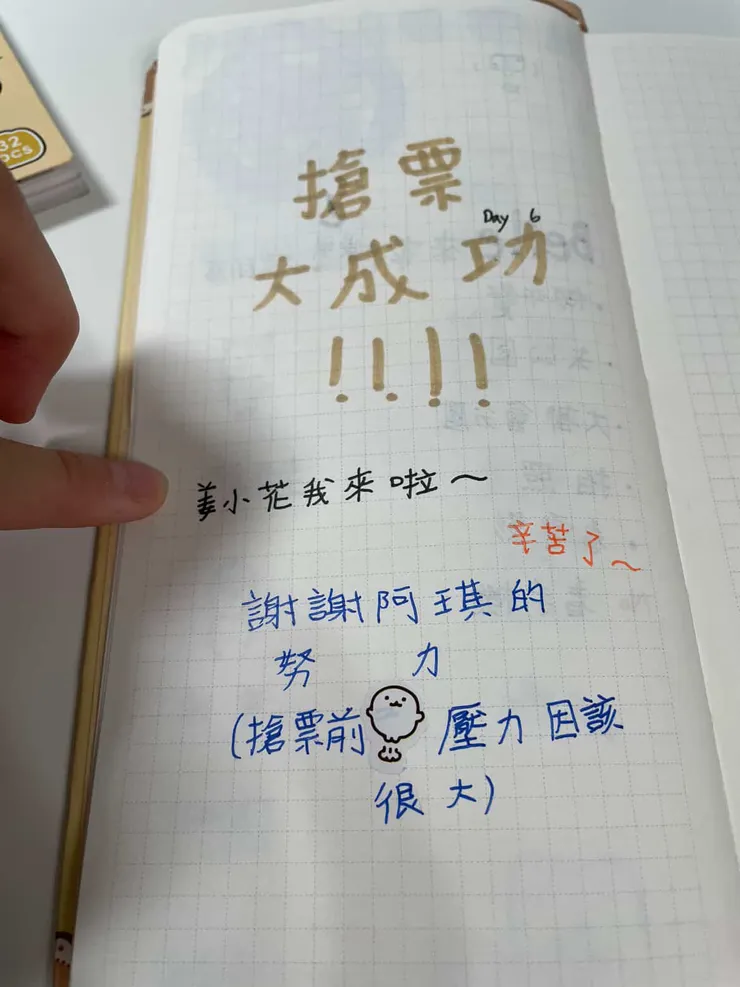 搶票
Day 6
大成功
!!!!
姜小花我來啦~
辛苦了~
謝謝阿琪的
努 力
(搶票前 壓力因該
很大)
32
PCS